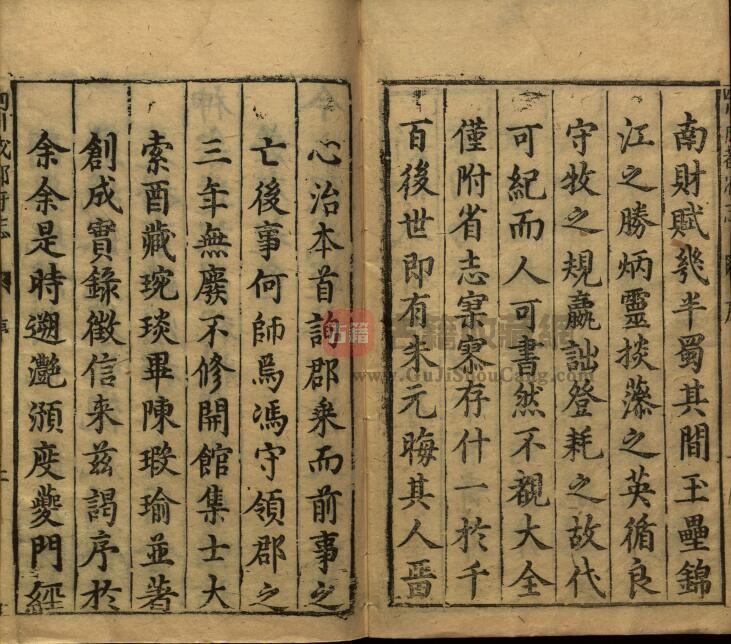 南財賦幾半蜀其間玉壘錦
江之勝炳靈掞藻之英循良
守牧之規贏詘登耗之故代
可紀而人可書然不覩大全
僅附省志寥寥存什一於千
百後世即有朱元晦其人畱
心治本首詢郡乗而前事之
亡後事何師焉馮守領郡之
三年無廢不修開館集士大
索酉藏琬琰畢陳瑕瑜並著
創成實錄徵信来茲謁序於
余余是時遡灧澦度夔門經
四川成都府志
序
古籍
www.GuJiShouCang.com